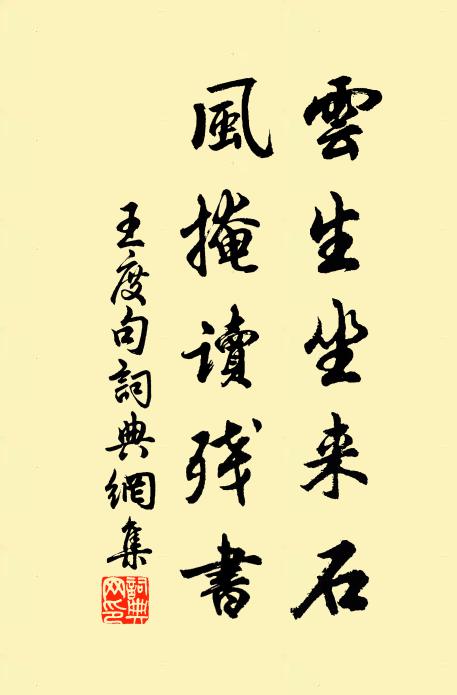 雲生坐来石
風掩读残書
王度句詞典網集
詞典网印